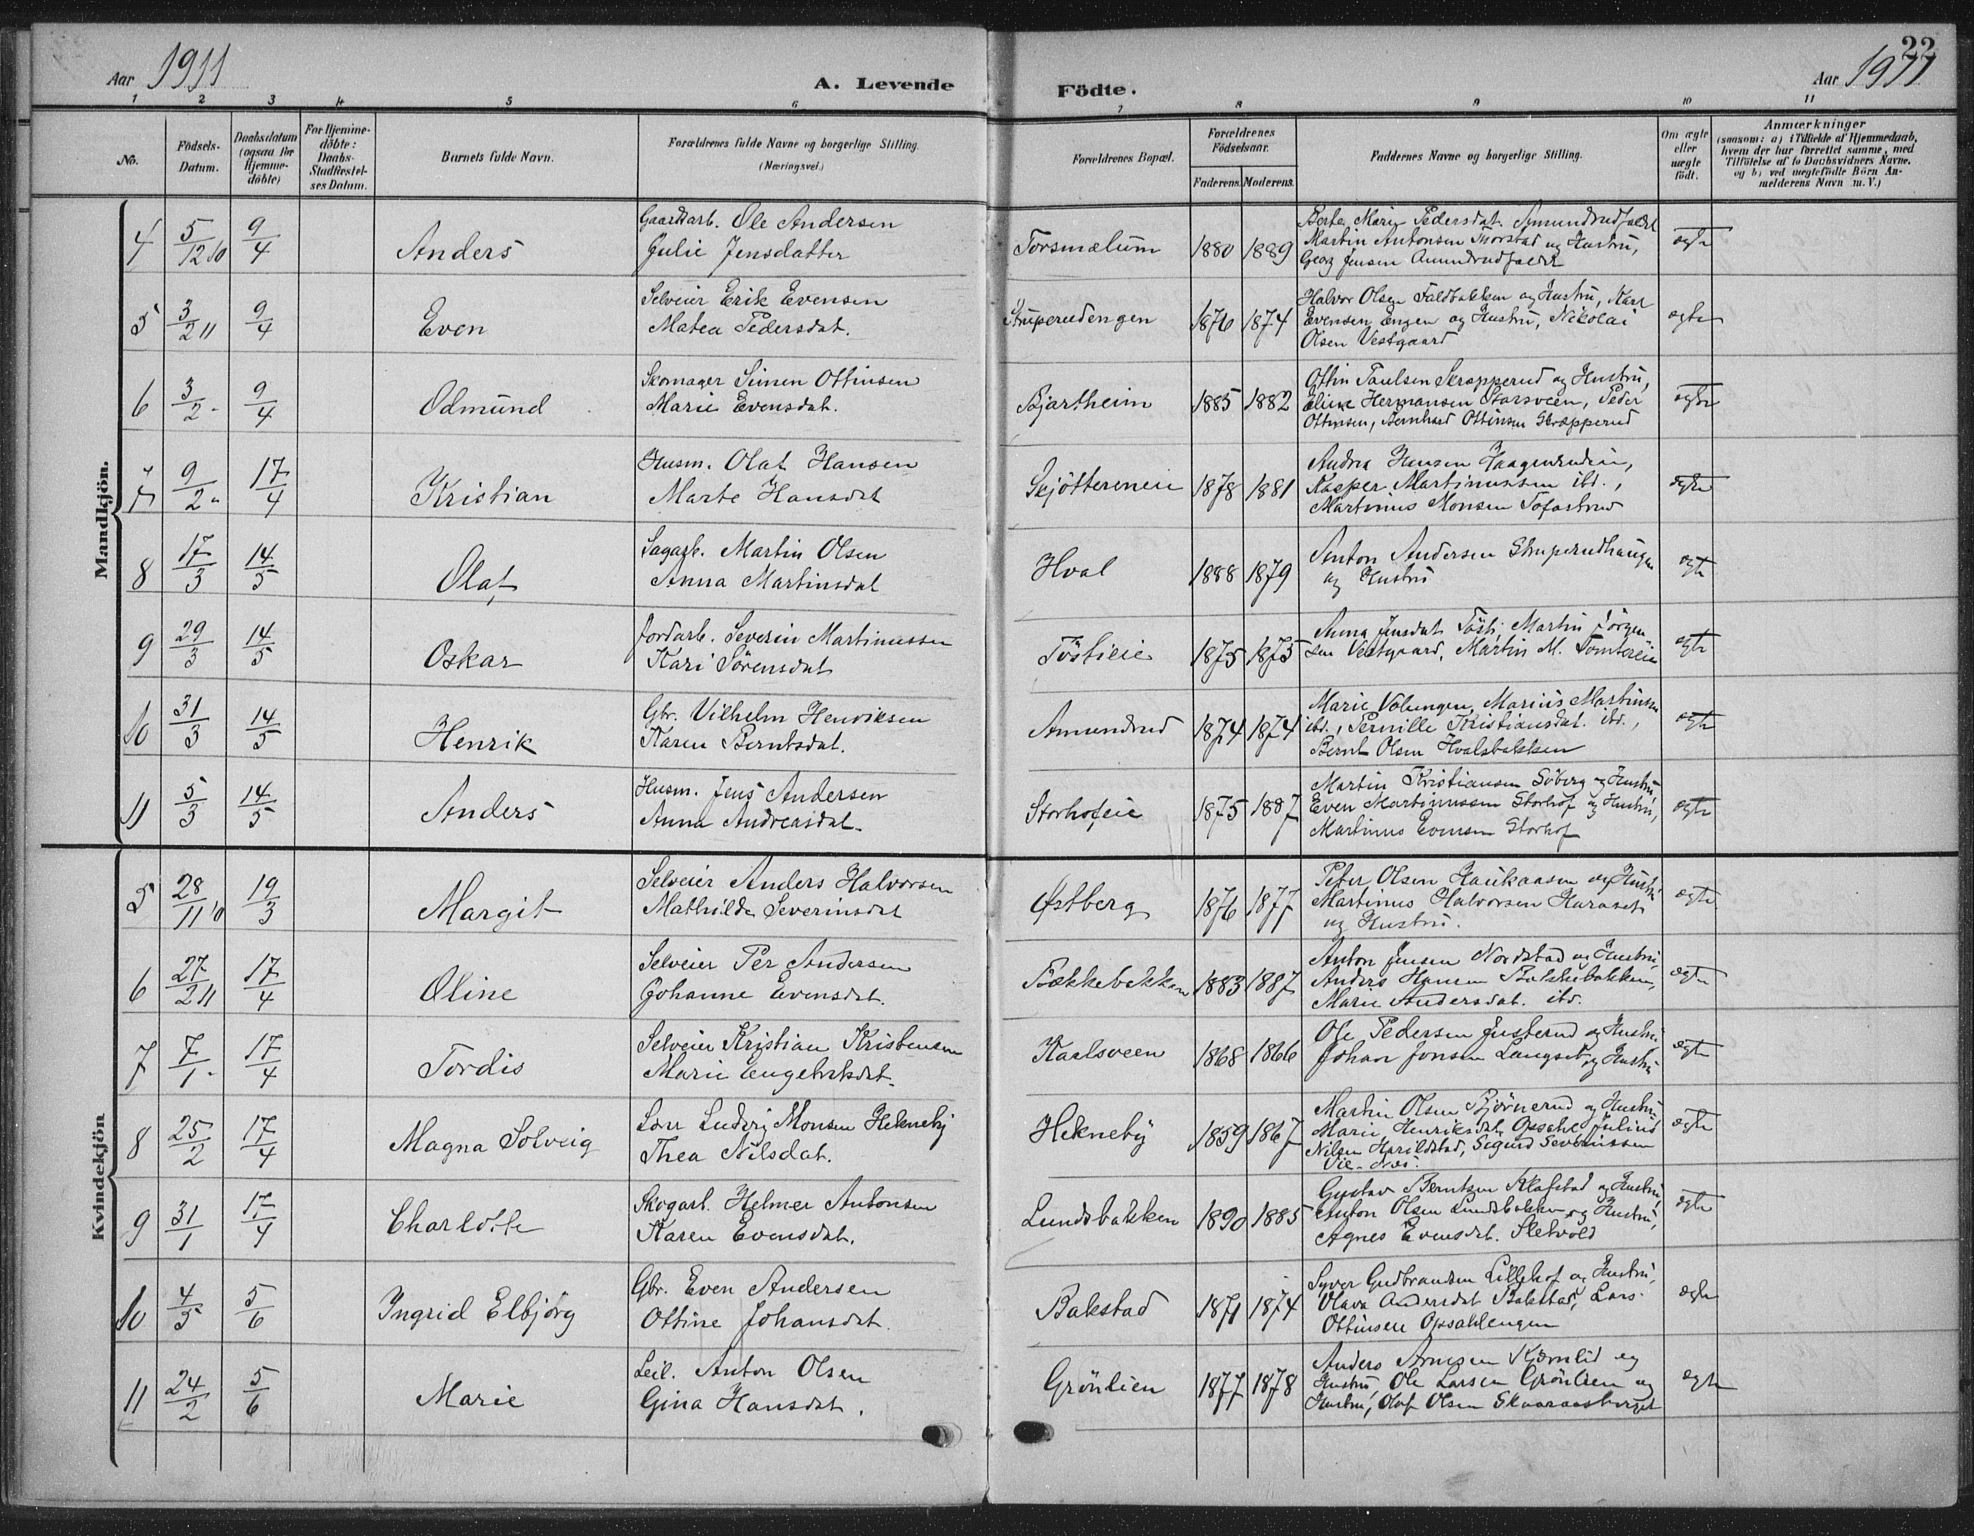 Aar 1911
A. Levende Födte.
Aar 1911
22
1 2 3 4 5 6 7 8 9 10 11
No.
Födsels-Datum.
Daabsdatum (ogsaa for Hjemme-döbte)
For Hjemme-döbte: Daabs-Stadfæstel-ses Datum.
Barnets fulde Navn.
Forældrenes fulde Navne og borgerlige Stilling. (Næringsvei.)
Forældrenes Bopæl.
Forældrenes Födselsaar.
Faderens. Moderens.
Faddernes Navne og borgerlige Stilling.
Om ægte eller uægte födt.
Anmærkninger
(saasom: a) i Tilfælde af Hjemmedaab,
hvem der har forrettet samme, med
Tilföielse af to Daabsvidners Navne,
og b) ved uægtefödte Börn An-
melderens Navn m. V.)
Mandkjön.
4 5/12 10 9/4 Anders
Gaardarb. Ole Andersen
Julie Jensdatter
Torsmælum 1880 1889
Berte Marie Pedersdat.
Martin Antonsen Thorstad og Hustru,
Georg Jensen
ægte
5 3/2 11 9/4 Even
Selveier Erik Evensen
Matea Pedersdat.
Struperudengen 1876 1874
Halvor Olsen Faldbakken og Hustru, Karl
Evensen Engen og Hustru, Nikolai
Olsen Vestgaard
ægte
6 3/2 - 9/4 Odmund
Skomager Simen Ottinsen
Marie Evensdat.
Bjartheim 1885 1882
Ottin Paulsen Skrapperud og Hustru,
Hermansen Peder
Ottinsen, Bernhard Ottinsen Skrapperud
ægte
7 9/2 " 17/4 Kristian
Husm. Olaf Hansen
Marte Hansdat
Skjöttereneie 1878 1881
Hansen
Kasper Martinussen ibd.,
Martinus Monsen Tofastrud
ægte
8 17/3 14/5 Olaf
Sagarb. Martin Olsen
Anna Martinsdat
Hval 1888 1879
Anton Andersen Struperudhaugen
og Hustru
ægte
9 29/3 14/5 Oskar
Jordarb. Severin Martinussen
Kari Sörensdat
Töstieie 1875 1873
Anna Jensdat Tösti, Martin Jörgen-
sen Vestgaard, Martin M. Tomtereie
ægte
10 31/3 14/5 Henrik
Gbr. Vilhelm Henriksen
Karen Berntsdat.
Amundrud 1874 1874
Marie Volungen, Marius Martinsen
ibd., Pernille Kristiansdat. ibd.,
Bernt Olsen Hvalsbakken
ægte
11 5/3 14/5 Anders
Husm. Jens Andersen
Anna Andreasdat.
Storhofeie 1875 1887
Martin Kristiansen Söberg og Hustru
Even Martinussen Storhof og Hustru,
Martinus Evensen Storhof
ægte
Kvindekjön
5 28/11 10 19/3 Margit
Selveier Anders Halvorsen
Mathilde Severinsdat
Østberg 1876 1877
Peter Olsen Haukaasen og Hustru
Martinus Halvorsen Haraset
og Hustru.
ægte
6 27/2 11 17/4 Oline
Selveier Per Andersen
Johanne Evensdat.
Bækkebakken 1883 1887
Anton Jensen Nordstad og Hustru,
Anders Hansen Bækkebakken,
Marie Andersdat. ibd.
ægte
7 7/1 - 17/4 Tordis
Selveier Kristian Kristensen
Marie Engebretsdat.
Karlsveen 1868 1866
Ole Pedersen Justerud og Hustru
Johan Jonsen Langset og Hustru
ægte
8 25/2 17/4 Magna Solveig
Ludvig Monsen Hekneby
Thea Nilsdat.
Hekneby 1859 1867
Martin Olsen Björnerud og Hustru
Marie Henriksdat. Opsahl, Julius
Nilsen Harildstad, Sigurd Severinssen
ægte
9 31/1 17/4 Charlotte
Skogarb. Helmer Antonsen
Karen Evensdat.
Lundsbakken 1890 1885
Gustav Berntzen Klafstad og Hustru
Anton Olsen Lundsbakken og Hustru,
Agnes Evensdat. Sletvold
ægte
10 4/5 5/6 Ingrid Elbjörg
Gbr. Even Andersen
Ottine Johansdat.
Bakstad 1871 1874
Syver Gudbrandsen Lillehof og Hustru,
Olava Andersdat Bakstad, Lars
Ottinsen Opsahlengen
ægte
11 24/2 5/6 Marie
Leil. Anton Olsen
Gina Hansdat.
Grönlien 1877 1878
Anders Arnesen Kjernlid og
Hustru, Ole Larsen Grönlien og
Hustru, Olaf Olsen Skaaraasberget
ægte